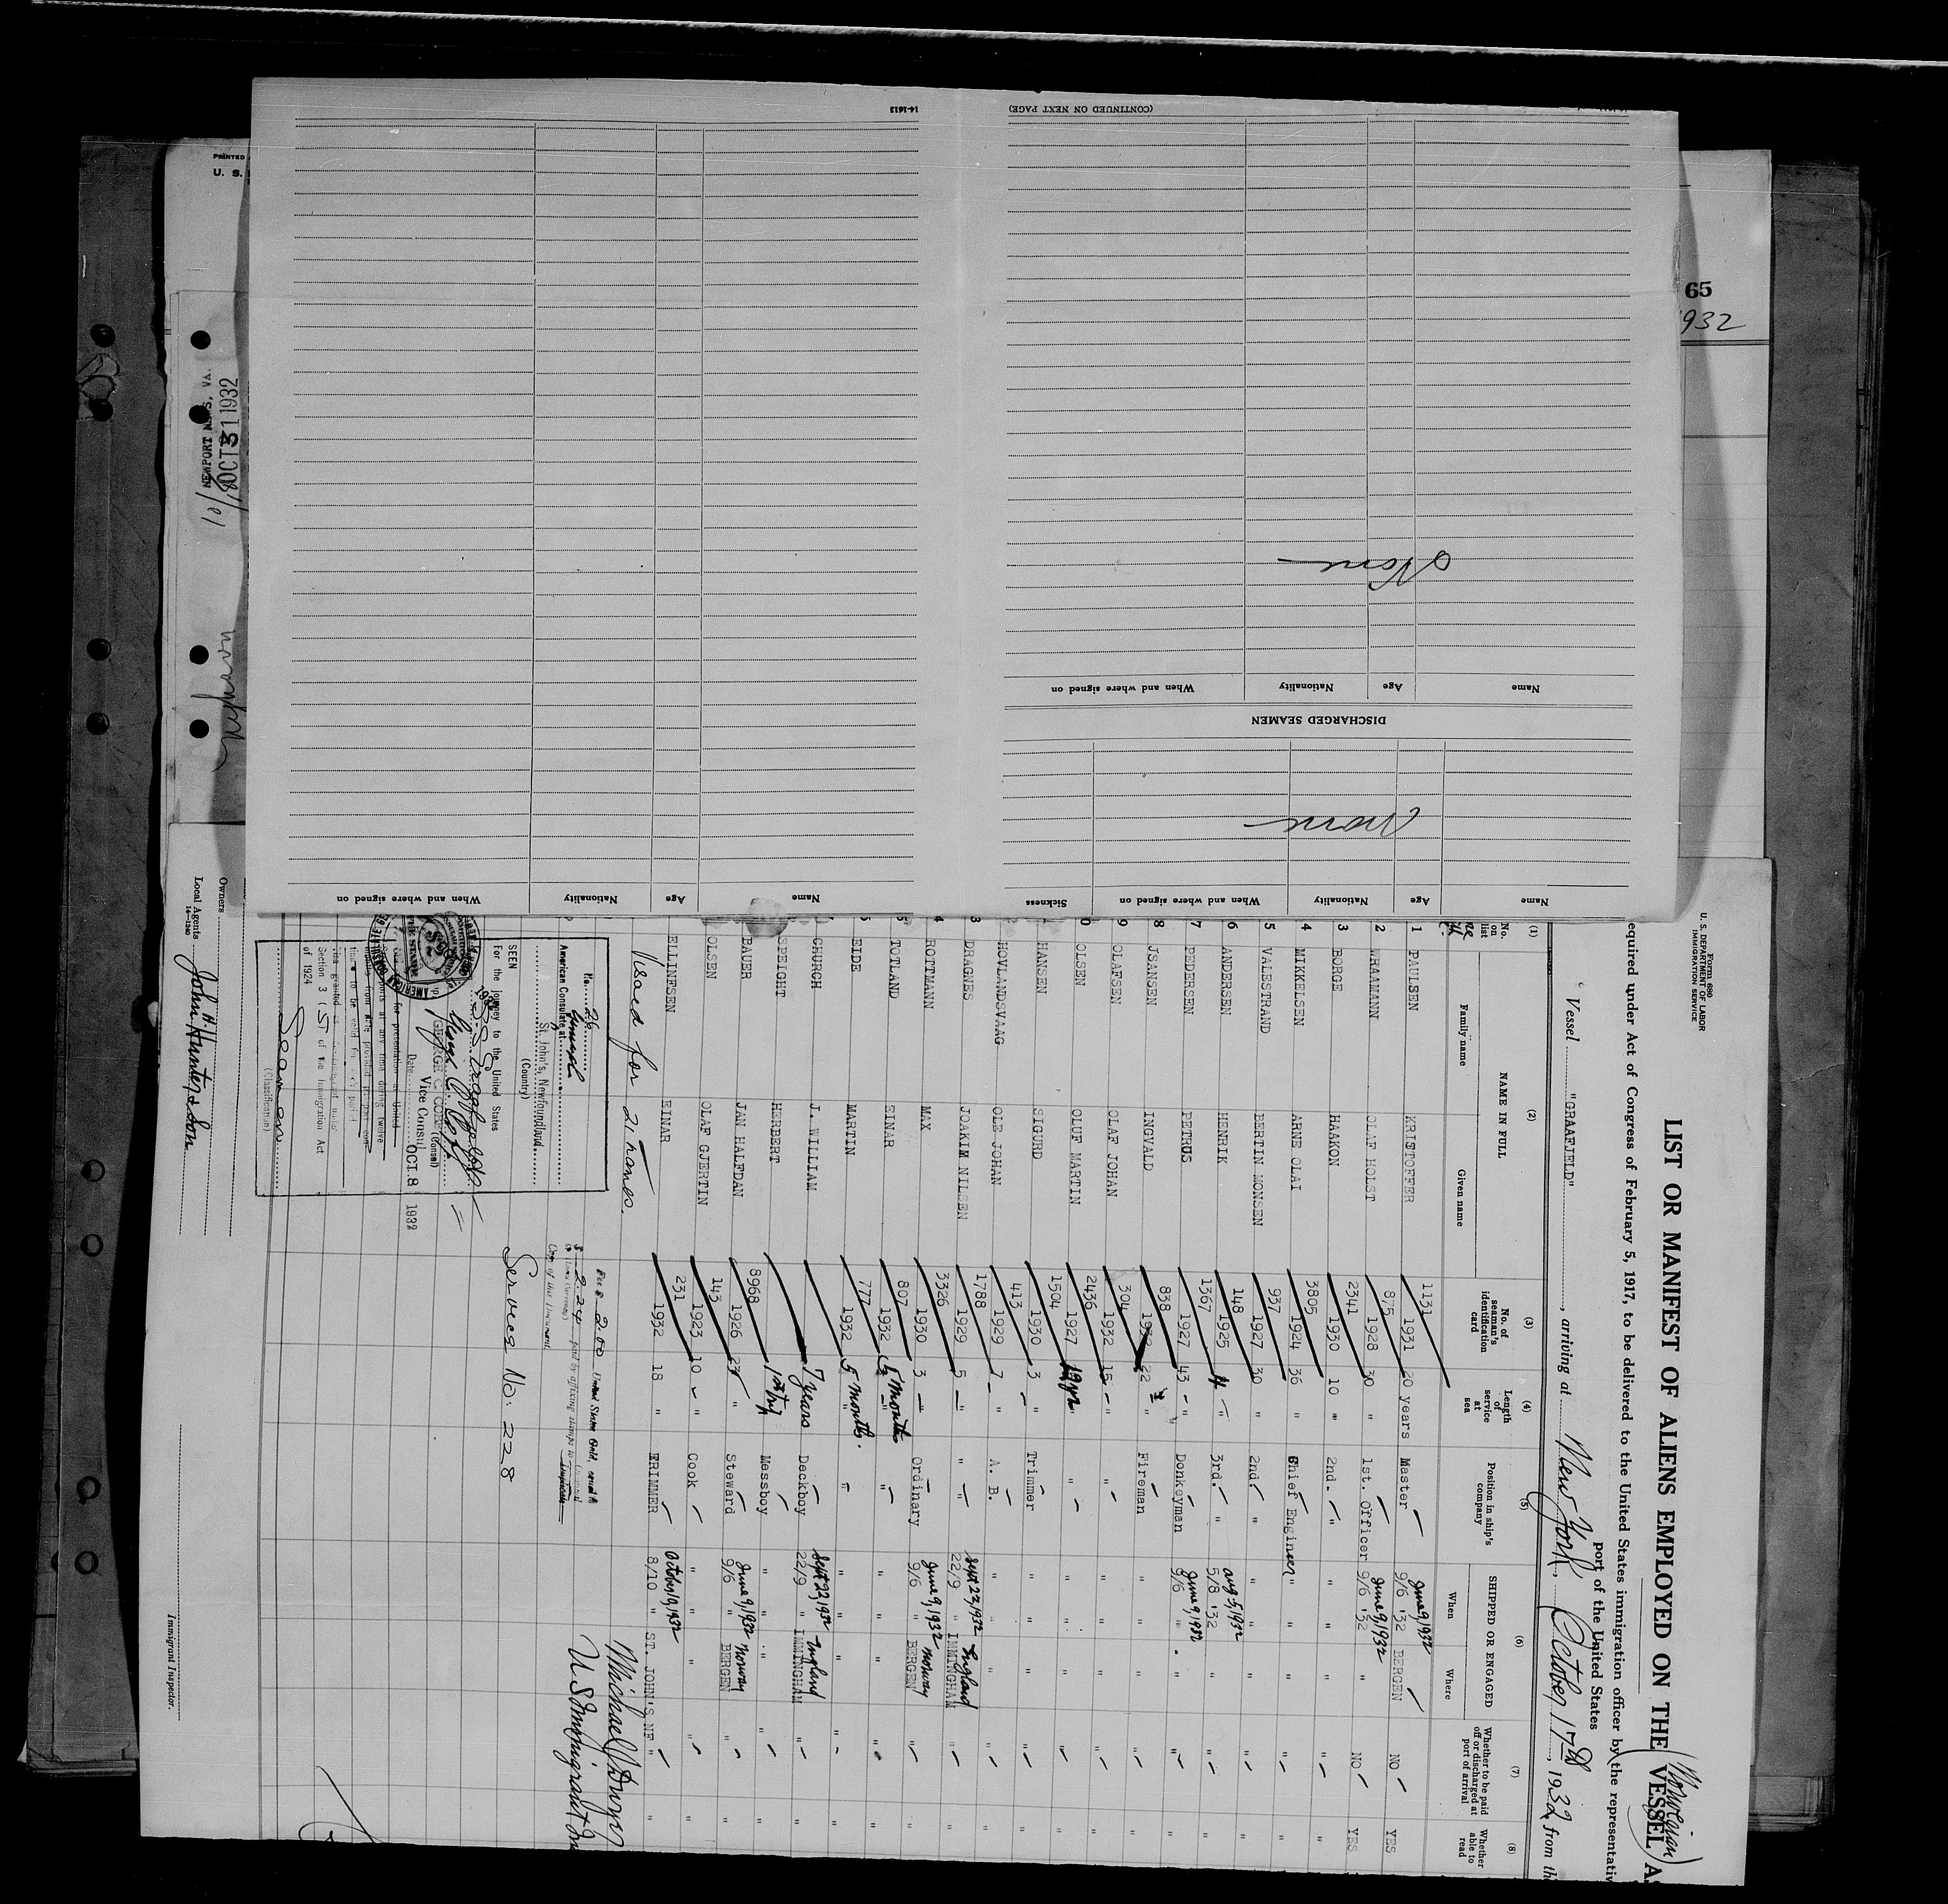 14-1613
(CONTINUED ON NEXT PAGE)
None
Name
Age
Nationality
When and where signed on
DISCHARGED SEAMEN
None
Name
Age
Nationality
When and where signed on
Sickness
Name
Age
Nationality
When and where signed on
PRINTED
U. S.
65
1932
NEWPORT NEWS, VA.
OCT 31 1932
Owners
Local Agents John H. Hunter & Son
14-1240
Immigrant Inspector.
Form 680
U. S. DEPARTMENT OF LABOR
IMMIGRATION SERVICE
LIST OR MANIFEST OF ALIENS EMPLOYED ON THE VESSEL AS
(Norwegian)
equired under Act of Congress of February 5, 1917, to be delivered to the United States immigration officer by the representativ
port of the United States
Vessel "GRAAFJELD", arriving at New York, October 17th, 1932, from th
(1) (2) (3) (4) (5) (6) (7) (8)
No. on list
NAME IN FULL
Family name Given name
No. of seaman's identification card
Length of service at sea
Position in ship's company
SHIPPED OR ENGAGED
When Where
Whether to be paid off or discharged at port of arrival
Whether able to read
1 PAULSEN KRISTOFFER 1131 1931 20 years Master June 9, 1932 9/6 '32 BERGEN NO YES
2 WRAAMANN OLAF HOLST 875 1928 30 " 1st. Officer June 9, 1932 9/6 '32 " NO YES
3 BORGE HAAKON 2341 1930 10 " 2nd. " " " " "
4 MIKKELSEN ARNE OLAI 3805 1924 36 " Chief Engineer " " " "
5 VALESTRAND BERTIN MONSEN 937 1927 30 " 2nd. " " " " "
6 ANDERSEN HENRIK 148 1925 4 " 3rd. " Aug 5, 1932 5/8 '32 " " "
7 PEDERSEN PETRUS 1367 1927 43 " Donkeyman June 9, 1932 9/6 " " " "
8 JSANSEN INGVALD 838 22 " Fireman " " " "
9 OLAFSEN OLAF JOHAN 304 1932 15 " " " " " "
0 OLSEN OLUF MARTIN 2436 1927 " " " " " "
HANSEN SIGURD 1504 1930 3 " Trimmer " " " "
HOVLANDSVAAG OLE JOHAN 413 1929 7 " A. B. " " " "
3 DRAGNES JOAKIM NILSEN 1788 1929 5 " " Sept 22, 1932 22/9 " England IMMINGHAM " "
4 ROTTMANN MAX 3326 1930 3 " Ordinary June 9, 1932 9/6 " Norway BERGEN " "
5 TOTLAND EINAR 807 1932 5 months " " " " " "
EIDE MARTIN 777 1932 5 months. " " " " " "
CHURCH J. WILLIAM 7 years Deckboy Sept 22, 1932 22/9 " England IMMINGHAM " "
SPEIGHT HERBERT 1st trip Messboy " " " " "
BAUER JAN HALFDAN 8968 1926 " Steward June 9, 1932 9/6 " Norway BERGEN " "
OLSEN OLAF GJERTIN 143 1923 10 " Cook " " " " "
ELLINFSEN EINAR 231 1932 18 " TRIMMER October 10, 1932 8/10 " ST. JOHN'S NF " "
Visaed for 21 names.
Michael J. Dwyer
U S Immigrant Ins
No. 26
American Consulate at
St. John's, Newfoundland
(Country)
SEEN
For the journey to the United States
GEORGE
Vice Consul
(Consul)
Date OCT. 8 1932
Section 3 (5) of the Immigration Act
of 1924
Seamen
(Classification)
Fee $ 2.00 United States Gold, equal to
$ 2.24 paid by affixing stamps to
Copy of this Document
Service No: 228